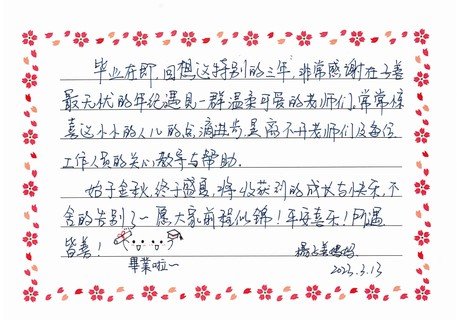 毕业在即,回想这特别的三年,非常感谢在子善
最无忧的年纪遇见一群温柔可爱的老师们,常常惊
喜这小小的人儿的点滴进步,是离不开老师们及每位
工作人员的关心教导与帮助.
始于金秋,终于盛夏,将收获到的成长与快乐,不
舍的告别了~愿大家前程似锦!平安喜乐!所遇
皆善!
畢業啦~
杨子善妈妈
2023.3.13